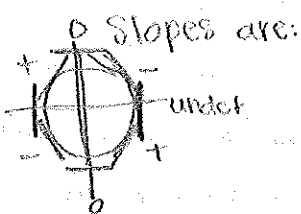 0 Slopes are:
+ -
undef
- +
0